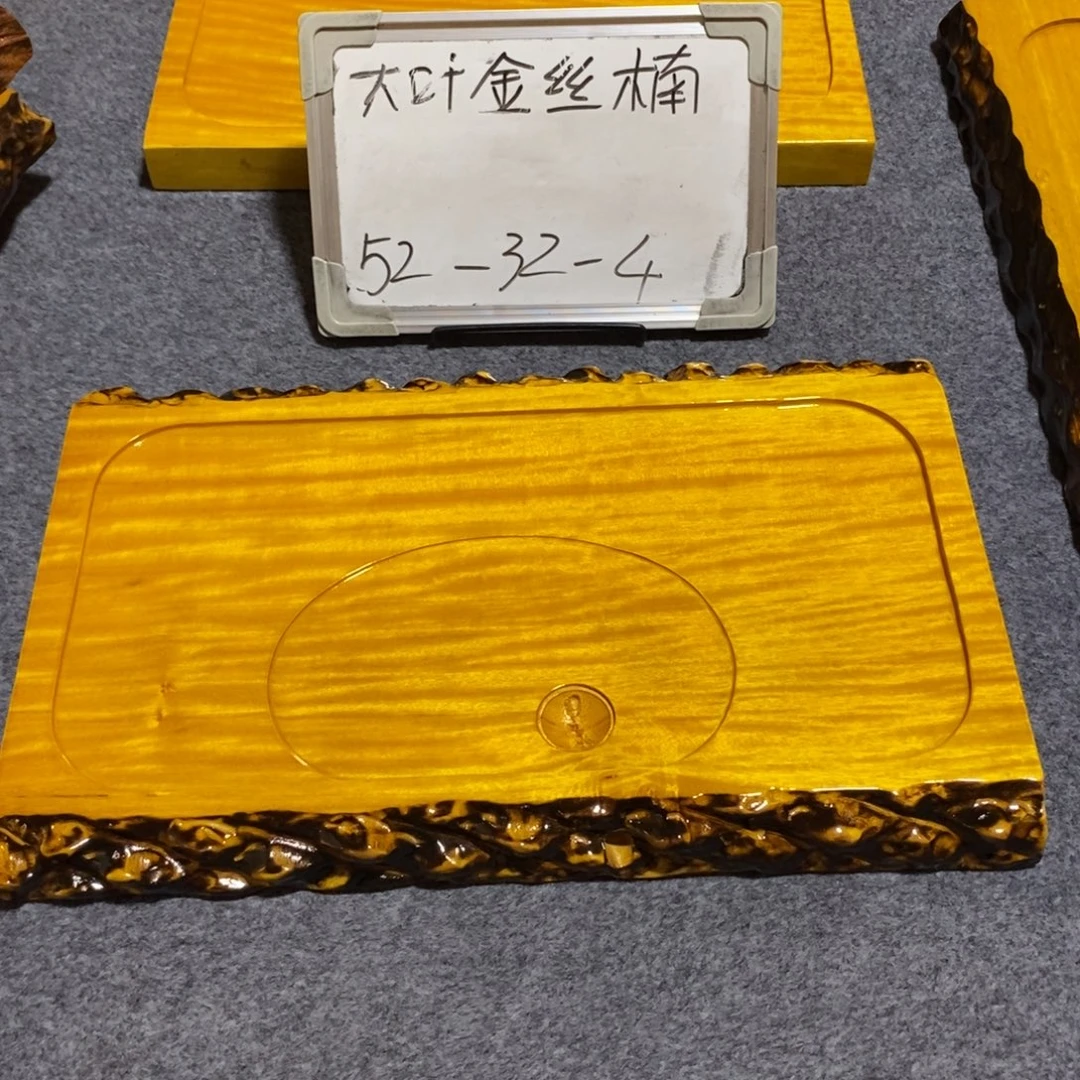 大叶金丝楠
52-32-4